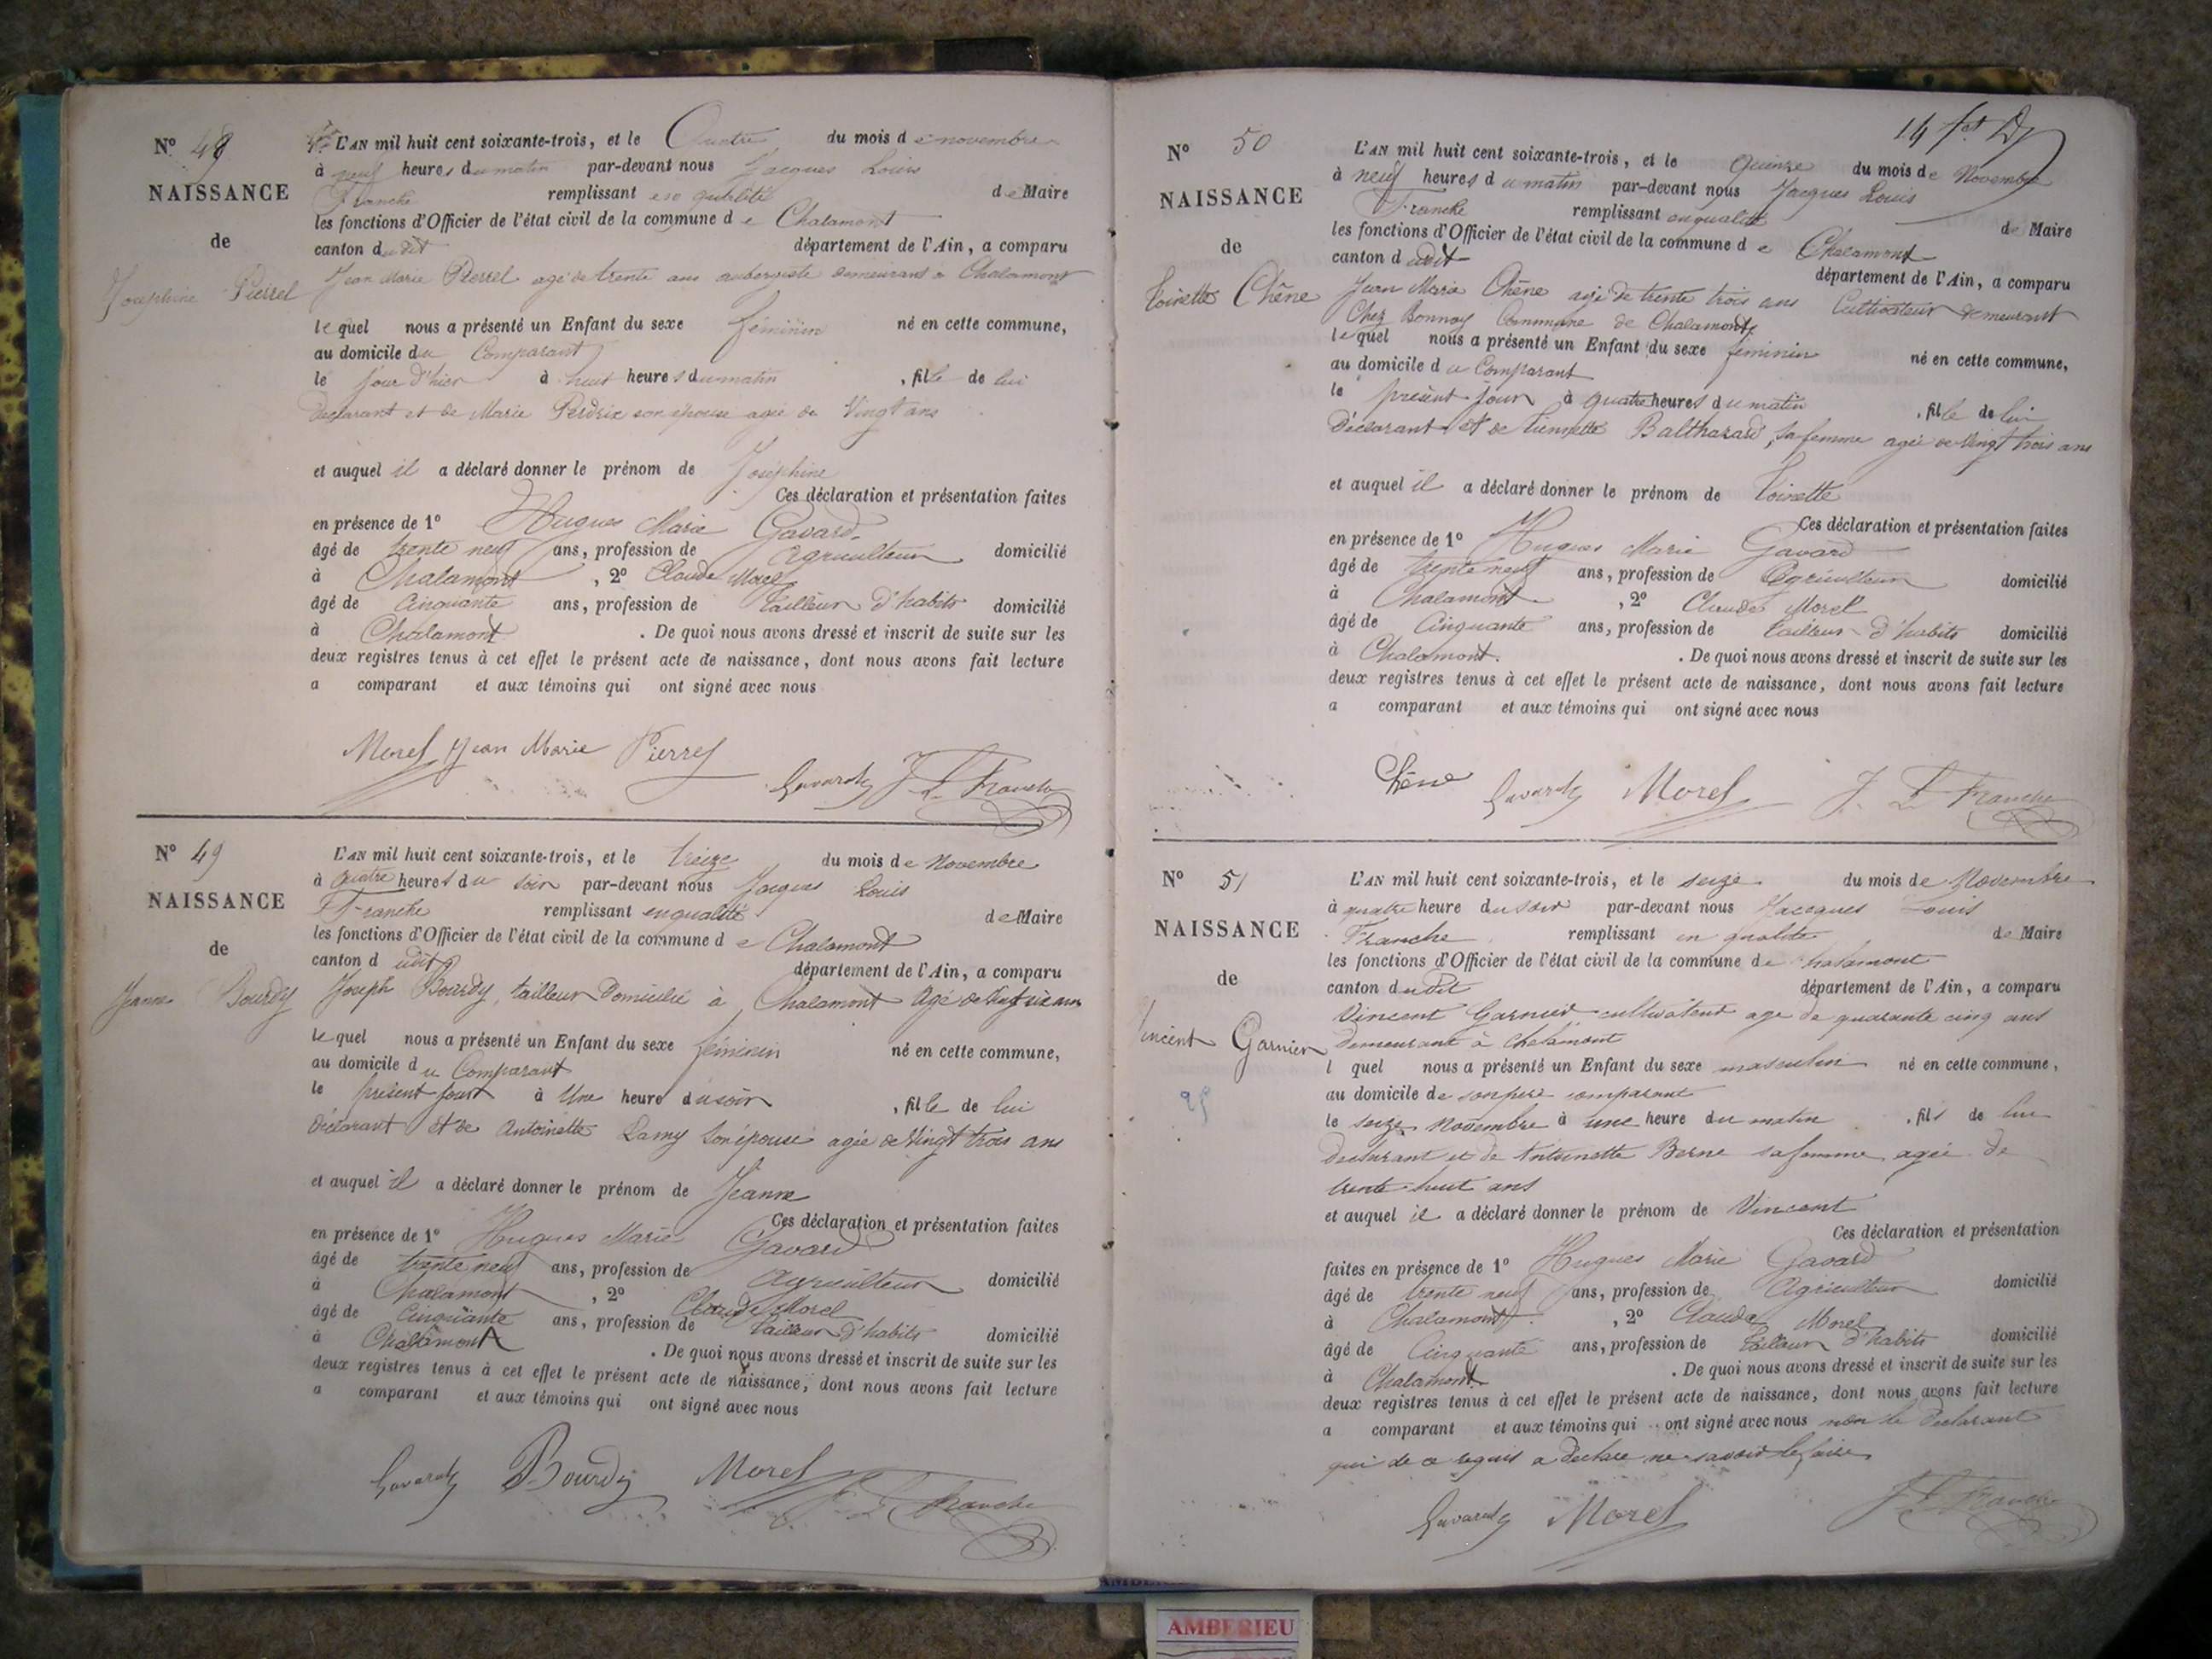 Nº 48
NAISSANCE
de
Joséphine Pierrel
L'AN mil huit cent soixante-trois, et le Quatre du mois de novembre
à neuf heures du matin par-devant nous Jacques Louis
Franche remplissant en qualité de Maire
les fonctions d'Officier de l'état civil de la commune de Chalamont
canton dudit département de l'Ain, a comparu
Jean Marie Pierrel agé de trente ans aubergiste demeurant à Chalamont
lequel nous a présenté un Enfant du sexe féminin né en cette commune,
au domicile du Comparant
le jour d'hier à huit heures du matin , fille de lui
Déclarant et de Marie Perdrix son épouse agée de Vingt ans
et auquel il a déclaré donner le prénom de Joséphine
Ces déclaration et présentation faites
en présence de 1º Hugues Marie Gavard
âgé de trente neuf ans, profession de Agriculteur domicilié
à Chalamont , 2º Claude Morel
âgé de Cinquante ans, profession de tailleur d'habits domicilié
à Chalamont . De quoi nous avons dressé et inscrit de suite sur les
deux registres tenus à cet effet le présent acte de naissance, dont nous avons fait lecture
a comparant et aux témoins qui ont signé avec nous
Morel Jean Marie Pierrel
Gavard J. L. Franche
Nº 49
NAISSANCE
de
Jeanne Bourdy
L'AN mil huit cent soixante-trois, et le treize du mois de Novembre
à Quatre heures du soir par-devant nous Jacques Louis
Franche remplissant en qualité de Maire
les fonctions d'Officier de l'état civil de la commune de Chalamont
canton dudit département de l'Ain, a comparu
Joseph Bourdy, tailleur Domicilié à Chalamont Agé de Vingt six ans
Lequel nous a présenté un Enfant du sexe féminin né en cette commune,
au domicile du Comparant
le présent jour à Une heure du soir , fille de lui
Déclarant et de Antoinette Lamy son épouse agée de Vingt trois ans
et auquel il a déclaré donner le prénom de Jeanne
Ces déclaration et présentation faites
en présence de 1º Hugues Marie Gavard
âgé de trente neuf ans, profession de Agriculteur domicilié
à Chalamont , 2º Claude Morel
âgé de Cinquante ans, profession de tailleur d'habits domicilié
à Chalamont . De quoi nous avons dressé et inscrit de suite sur les
deux registres tenus à cet effet le présent acte de naissance, dont nous avons fait lecture
a comparant et aux témoins qui ont signé avec nous
Gavard Bourdy Morel
J. L. Franche
14
Nº 50
NAISSANCE
de
Toinette Chêne
L'AN mil huit cent soixante-trois, et le Quinze du mois de Novembre
à neuf heures du matin par-devant nous Jacques Louis
Franche remplissant en qualité de Maire
les fonctions d'Officier de l'état civil de la commune de Chalamont
canton dudit département de l'Ain, a comparu
Jean Marie Chêne agé de trente trois ans Cultivateur demeurant
Chez Bonnoy Commune de Chalamont
lequel nous a présenté un Enfant du sexe féminin né en cette commune,
au domicile du Comparant
le présent jour à quatre heures du matin , fille de lui
Déclarant et de Balthazard, sa femme agée de Vingt trois ans
et auquel il a déclaré donner le prénom de Toinette
Ces déclaration et présentation faites
en présence de 1º Hugues Marie Gavard
âgé de trente neuf ans, profession de Agriculteur domicilié
à Chalamont , 2º Claude Morel
âgé de Cinquante ans, profession de tailleur d'habits domicilié
à Chalamont. . De quoi nous avons dressé et inscrit de suite sur les
deux registres tenus à cet effet le présent acte de naissance, dont nous avons fait lecture
a comparant et aux témoins qui ont signé avec nous
Chêne Gavard Morel J. L. Franche
Nº 51
NAISSANCE
de
Vincent Garnier
L'AN mil huit cent soixante-trois, et le seize du mois de Novembre
à quatre heure du soir par-devant nous Jacques Louis
Franche remplissant en qualité de Maire
les fonctions d'Officier de l'état civil de la commune de Chalamont
canton dudit département de l'Ain, a comparu
Vincent Garnier cultivateur age de quarante cinq ans
demeurant à Chalamont
l quel nous a présenté un Enfant du sexe masculin né en cette commune,
au domicile de son père comparant
le seize Novembre à une heure du matin , fils de lui
Déclarant et de Antoinette Berne sa femme agée de
trente huit ans
et auquel il a déclaré donner le prénom de Vincent
Ces déclaration et présentation
faites en présence de 1º Hugues Marie Gavard
âgé de trente neuf ans, profession de Agriculteur domicilié
à Chalamont. , 2º Claude Morel
âgé de Cinquante ans, profession de tailleur d'habits domicilié
à Chalamont . De quoi nous avons dressé et inscrit de suite sur les
deux registres tenus à cet effet le présent acte de naissance, dont nous avons fait lecture
a comparant et aux témoins qui ont signé avec nous non le Déclarant
qui de ce requis a déclaré ne savoir le faire
Gavard Morel J. L. Franche
AMBERIEU